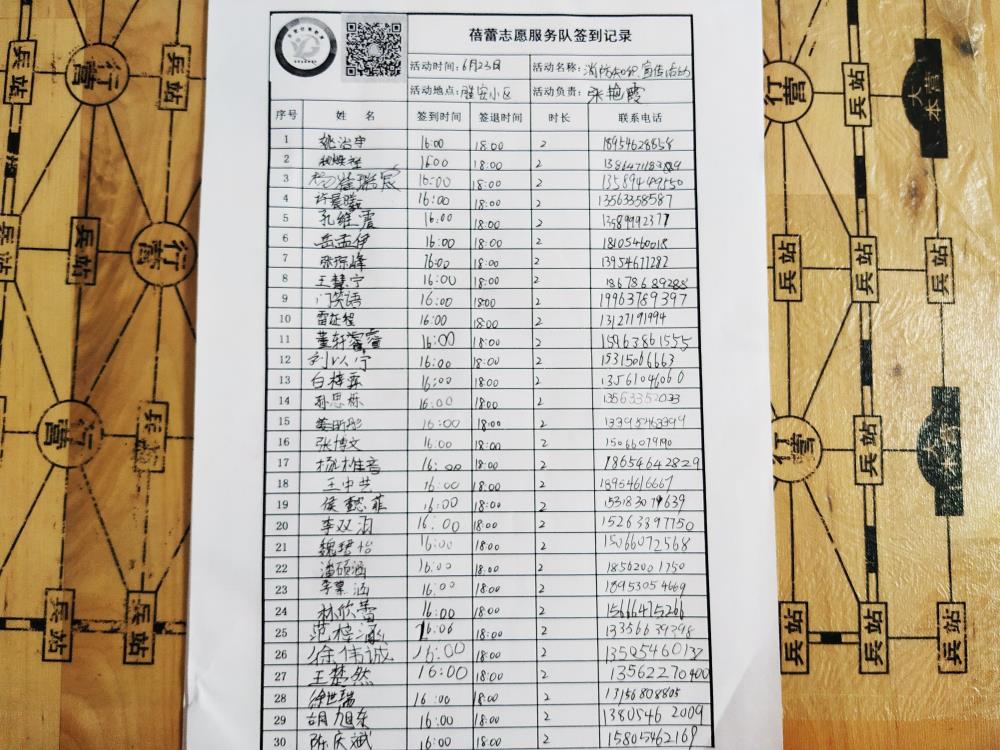 蓓蕾志愿服务队签到记录
活动时间：6月23日 活动名称：消防知识宣传活动
活动地点：胜安小区 活动负责：张艳霞
序号 姓 名 签到时间 签退时间 时长 联系电话
1 姚治宇 16:00 18:00 2 18954628858
2 16:00 18:00 2
3 杨崔瑞宸 16:00 18:00 2 13589449550
4 许晨曦 16:00 18:00 2 13563358587
5 孔维震 16:00 18:00 2 13589992377
6 岳孟伊 16:00 18:00 2 18105460018
7 张琮峰 16:00 18:00 2 13954677282
8 王慧宁 16:00 18:00 2 18678689285
9 门英语 16:00 18:00 2 19963789397
10 雷征程 16:00 18:00 2 13127191994
11 董轩睿 16:00 18:00 2 15963861555
12 刘以宁 16:00 18:00 2 15315066663
13 白梓霖 16:00 18:00 2 13561046060
14 孙思栎 16:00 18:00 2 13563352033
15 16:00 18:00 2 13395463399
16 张博文 16:00 18:00 2 15066079190
17 16:00 18:00 2 18654642829
18 王中艺 16:00 18:00 2 18954616667
19 侯懿菲 16:00 18:00 2
20 李双羽 16:00 18:00 2 15263397750
21 魏珺怡 16:00 18:00 2 15066072568
22 潘硕涵 16:00 18:00 2 18562001750
23 李菓涵 16:00 18:00 2 18953054669
24 林欣蕾 16:00 18:00 2 15666475266
25 范梓涵 16:00 18:00 2 13356639398
26 徐伟诚 16:00 18:00 2 13595460132
27 王楚然 16:00 18:00 2 13562270400
28 徐世瑞 16:00 18:00 2 13156808805
29 胡旭东 16:00 18:00 2 13805462009
30 陈庆斌 16:00 18:00 2 15805462169
行营
兵站
兵站
兵站
行营
行营
兵站
兵站
兵站
行营
兵站
大本营
兵站
兵站
兵站
行营
兵站
大本营
兵站
兵站
兵站